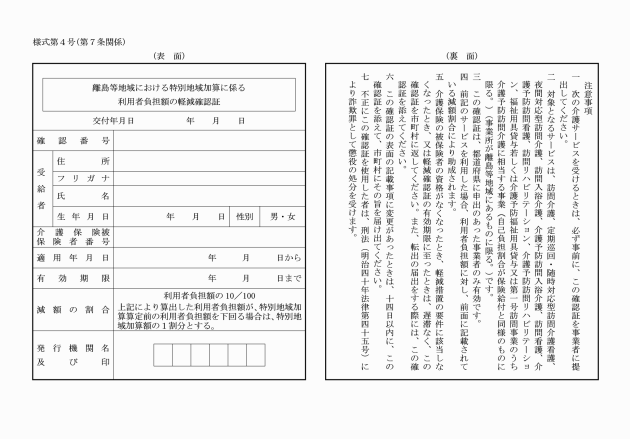 様式第４号(第７条関係)
(表　面)
離島等地域における特別地域加算に係る
利用者負担額の軽減確認証
交付年月日　　　年　　月　　日
確認番号
受給者
住所
フリガナ
氏名
生年月日　　　年　　月　　日　性別　男・女
介護保険被
保険者番号
適用年月日　　　年　　月　　日から
有効期限　　　年　　月　　日まで
減額の割合
利用者負担額の10／100
上記により算出した利用者負担額が、特別地域加
算算定前の利用者負担額を下回る場合は、特別地
域加算額の１割分とする。
発行機関名
及び印
(裏　面)
注意事項
一　次の介護サービスを受けるときは、必ず事前に、この確認証を事業者に提
出してください。
二　対象となるサービスは、訪問介護、定期巡回・随時対応型訪問介護看護、
夜間対応型訪問介護、訪問入浴介護、介護予防訪問入浴介護、訪問看護、介
護予防訪問看護、訪問リハビリテーション、介護予防訪問リハビリテーショ
ン、福祉用具貸与若しくは介護予防福祉用具貸与又は第一号訪問事業のうち
介護予防訪問介護に相当する事業（自己負担割合が保険給付と同様のものに
限る。）（事業所が離島等地域にあるものに限る。）です。
三　この確認証は、都道府県に申出のあった事業者のみ有効です。
四　前記のサービスを利用した場合、利用者負担額に対し、前面に記載されて
いる減額割合により助成されます。
五　介護保険の被保険者の資格がなくなったとき、軽減措置の要件に該当しな
くなったとき、又は軽減確認証の有効期限に至ったときは、遅滞なく、この
確認証を市町村に返してください。また、転出の届出をする際には、この確
認証を添えてください。
六　この確認証の表面の記載事項に変更があったときは、十四日以内に、この
確認証を添えて、市町村にその旨を届け出てください。
七　不正にこの確認証を使用した者は、刑法（明治四十年法律第四十五号）に
より詐欺罪として懲役の処分を受けます。